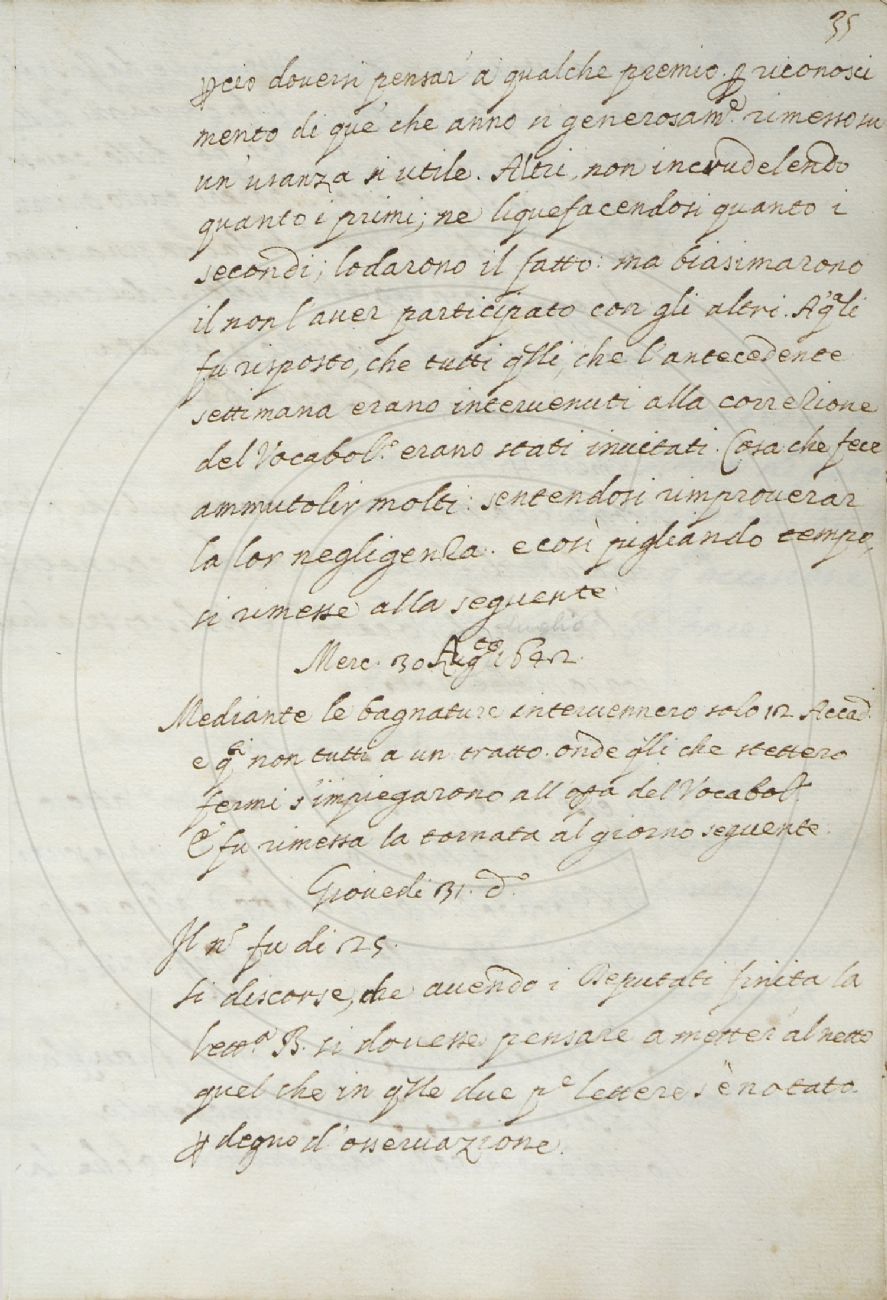 35
ꝑciò doversi pensar' a qualche premio ꝑ riconosci
mento di que' che anno si generosam.e rimesso su
un' usanza si utile. Altri, non incrudelendo
quanto i primi; ne liquefacendosi quanto i
secondi; lodarono il fatto: ma biasimarono
il non l'aver participato con gli altri. A' q.li
fu risposto, che tutti q̃lli, che l'antecedente
settimana erano intervenuti alla correzione
del Vocabol.o erano stati invitati. Cosa che fece
ammutolir molti: sentendosi rimproverar
la lor negligenza. e così pigliando tempo,
si rimesse alla seguente
Merc. 30 Ag.to 1642.
Mediante le bagnature intervennero solo 12 Accad.
e q.ti non tutti a un tratto. onde q̃lli che stettero
fermi s'impiegarono all'oꝑa del Vocabol.o
E fu rimessa la tornata al giorno seguente.
Giovedi 31. d.o
Il n.o fu di 25.
Si discorse, che avendo i Deputati finita la
lett.a B. si dovesse pensare a metter' al netto
quel che in q̃lle due p.e lettere s'è notato
ꝑ degno d'osservazione.